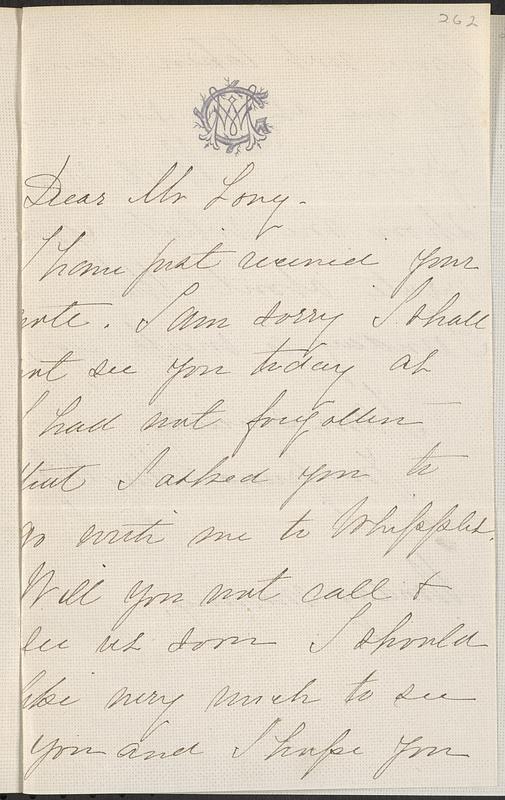 262
Dear Mr Long.
I have just received your
note. I am sorry I shall
not see you today as
I had not forgotten
that I asked you to
go with me to Whipples.
Will you not call &
see us soon I should
like very much to see
you and I hope you